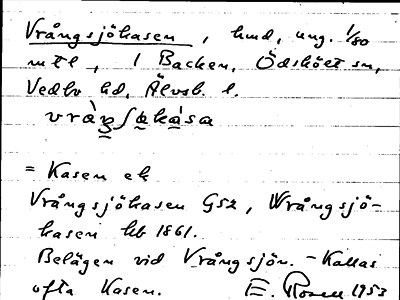 Vrångsjökasen, hmd, ung. 1/80
mtl, 1 Backen, Ödskölt sn,
Vedbo hd, Älvsb. l.
vràŋʃøkàsa
= Kasen ek
Vrångsjökasen GSz, Wrångsjö-
kasen hb 1861.
Belägen vid Vrångsjön. - Kallas
ofta Kasen. E. Rosell 1953